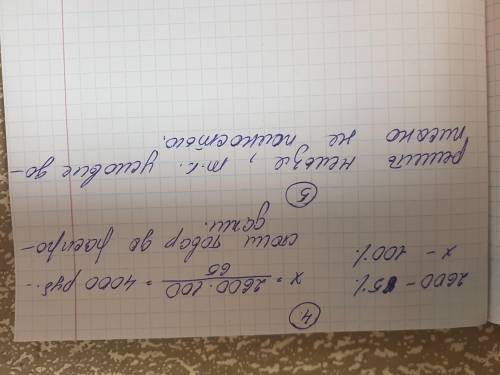 4.
2600 - 65% x = 2600 · 100 / 65 = 4000 руб. -
x - 100% стоил товар до распро-
дажи.
5
решить нельзя, т.к. условие до-
писано не полностью.